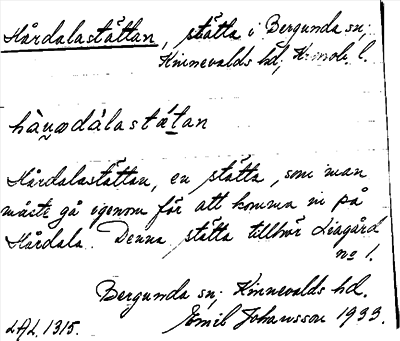 Hårdalastättan, stätta i Bergunda sn;
Kinnevalds hd; Kronob. l.
Hårdalastättan, en stätta, som man
måste gå igenom för att komma in på
Hårdala. Denna stätta tillhör Liagård
no 1.
Bergunda sn; Kinnevalds hd.
LAL. 1315. Emil Johansson 1933.